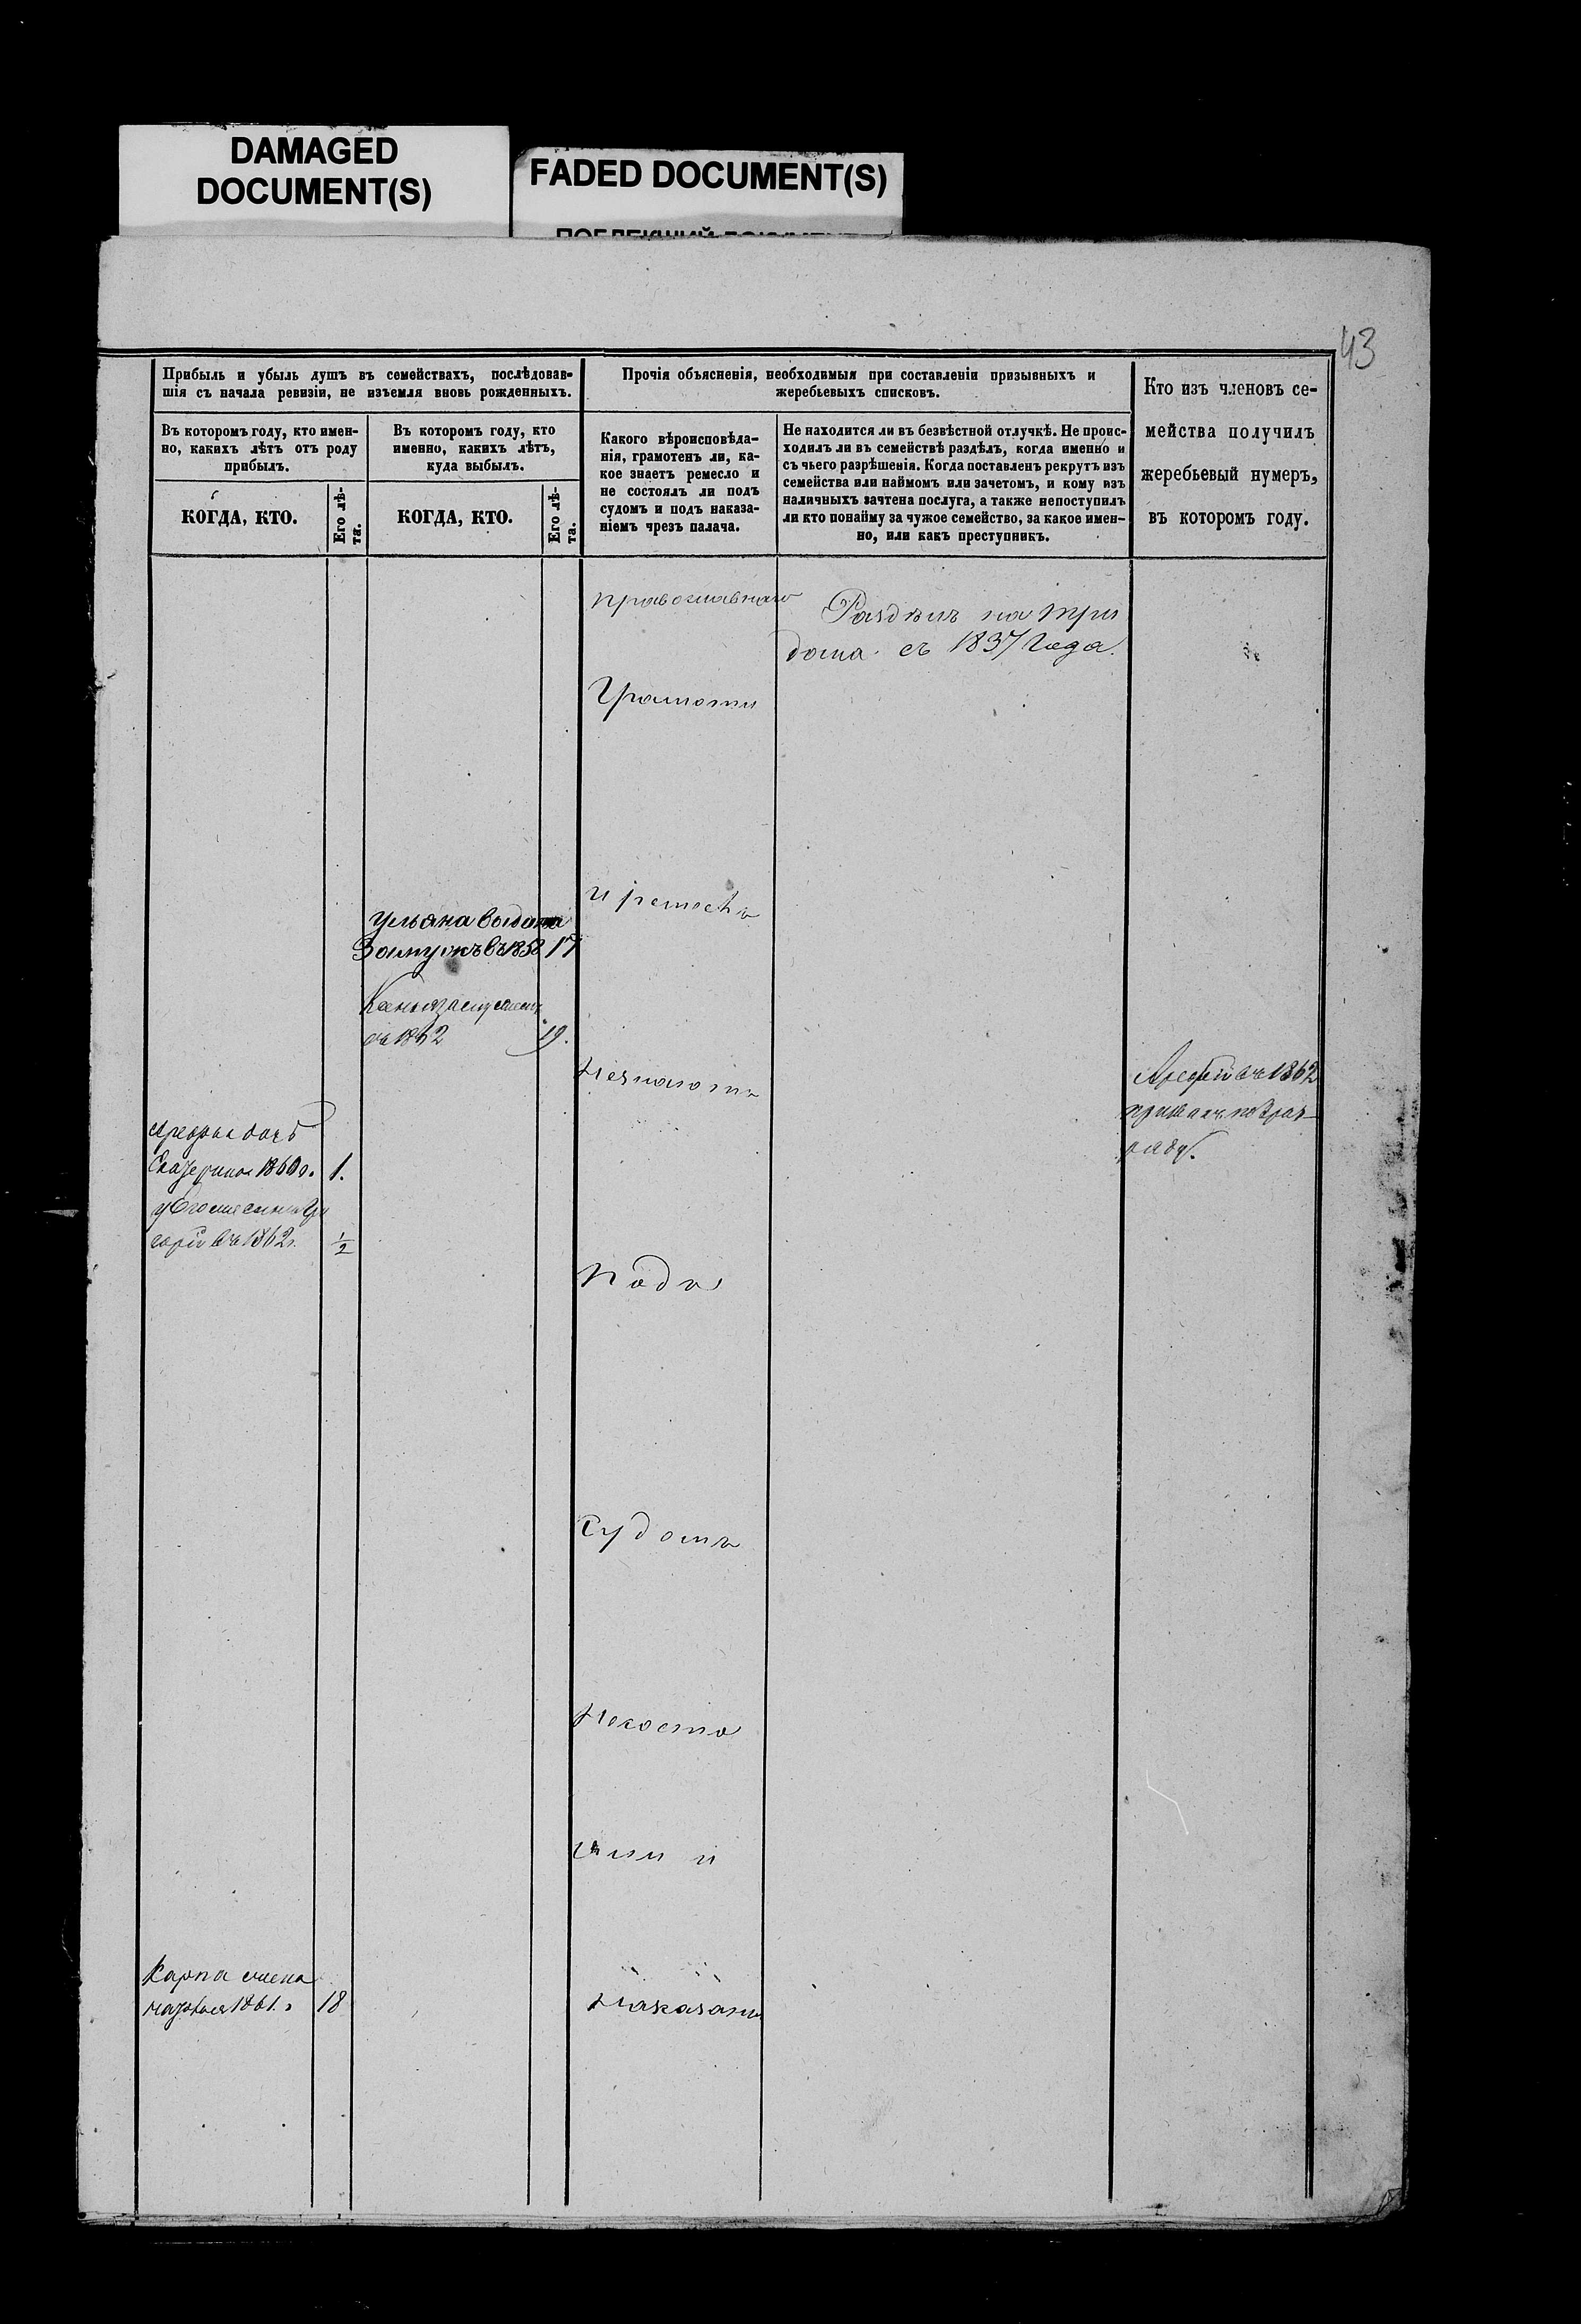 DAMAGED
DOCUMENT(S)
FADED DOCUMENT(S)
43
Прибыль и убыль душъ въ семействахъ, послѣдовав-
шія съ начала ревизіи, не изъемля вновь рожденныхъ.
Въ которомъ году, кто имен-
но, какихъ лѣтъ отъ роду
прибылъ.
КОГДА, КТО.
Его лѣ-
та.
Въ которомъ году, кто
именно, какихъ лѣтъ,
куда выбылъ.
КОГДА, КТО.
Его лѣ-
та.
Прочія объясненія, необходимыя при составленіи призывныхъ и
жеребьевыхъ списковъ.
Какого вѣроисповѣда-
нія, грамотенъ ли, ка-
кое знаетъ ремесло и
не состоялъ ли подъ
судомъ и подъ наказа-
ніемъ чрезъ палача.
Не находится ли въ безвѣстной отлучкѣ. Не проис-
ходилъ ли въ семействѣ раздѣлъ, когда именно и
съ чьего разрѣшенія. Когда поставленъ рекрутъ изъ
семейства или наймомъ или зачетомъ, и кому изъ
наличныхъ зачтена послуга, а также непоступилъ
ли кто понайму за чужое семейство, за какое имен-
но, или какъ преступникъ.
Кто изъ членовъ се-
мейства получилъ
жеребьевый нумеръ,
въ которомъ году.
православнаго
Раздѣлъ на три
дома съ 1837 года.
Грамоты
и ремесла
Ульяна выдана
Замужъ въ 1858 17
въ 1862 19.
Незнаютъ
въ 1862
дочь
Екатерина 1860 г. 1.
въ 1862 г. 1/2
Подъ
Судомъ
Несосто
яли и
Карпа
1861 г. 18
Наказани